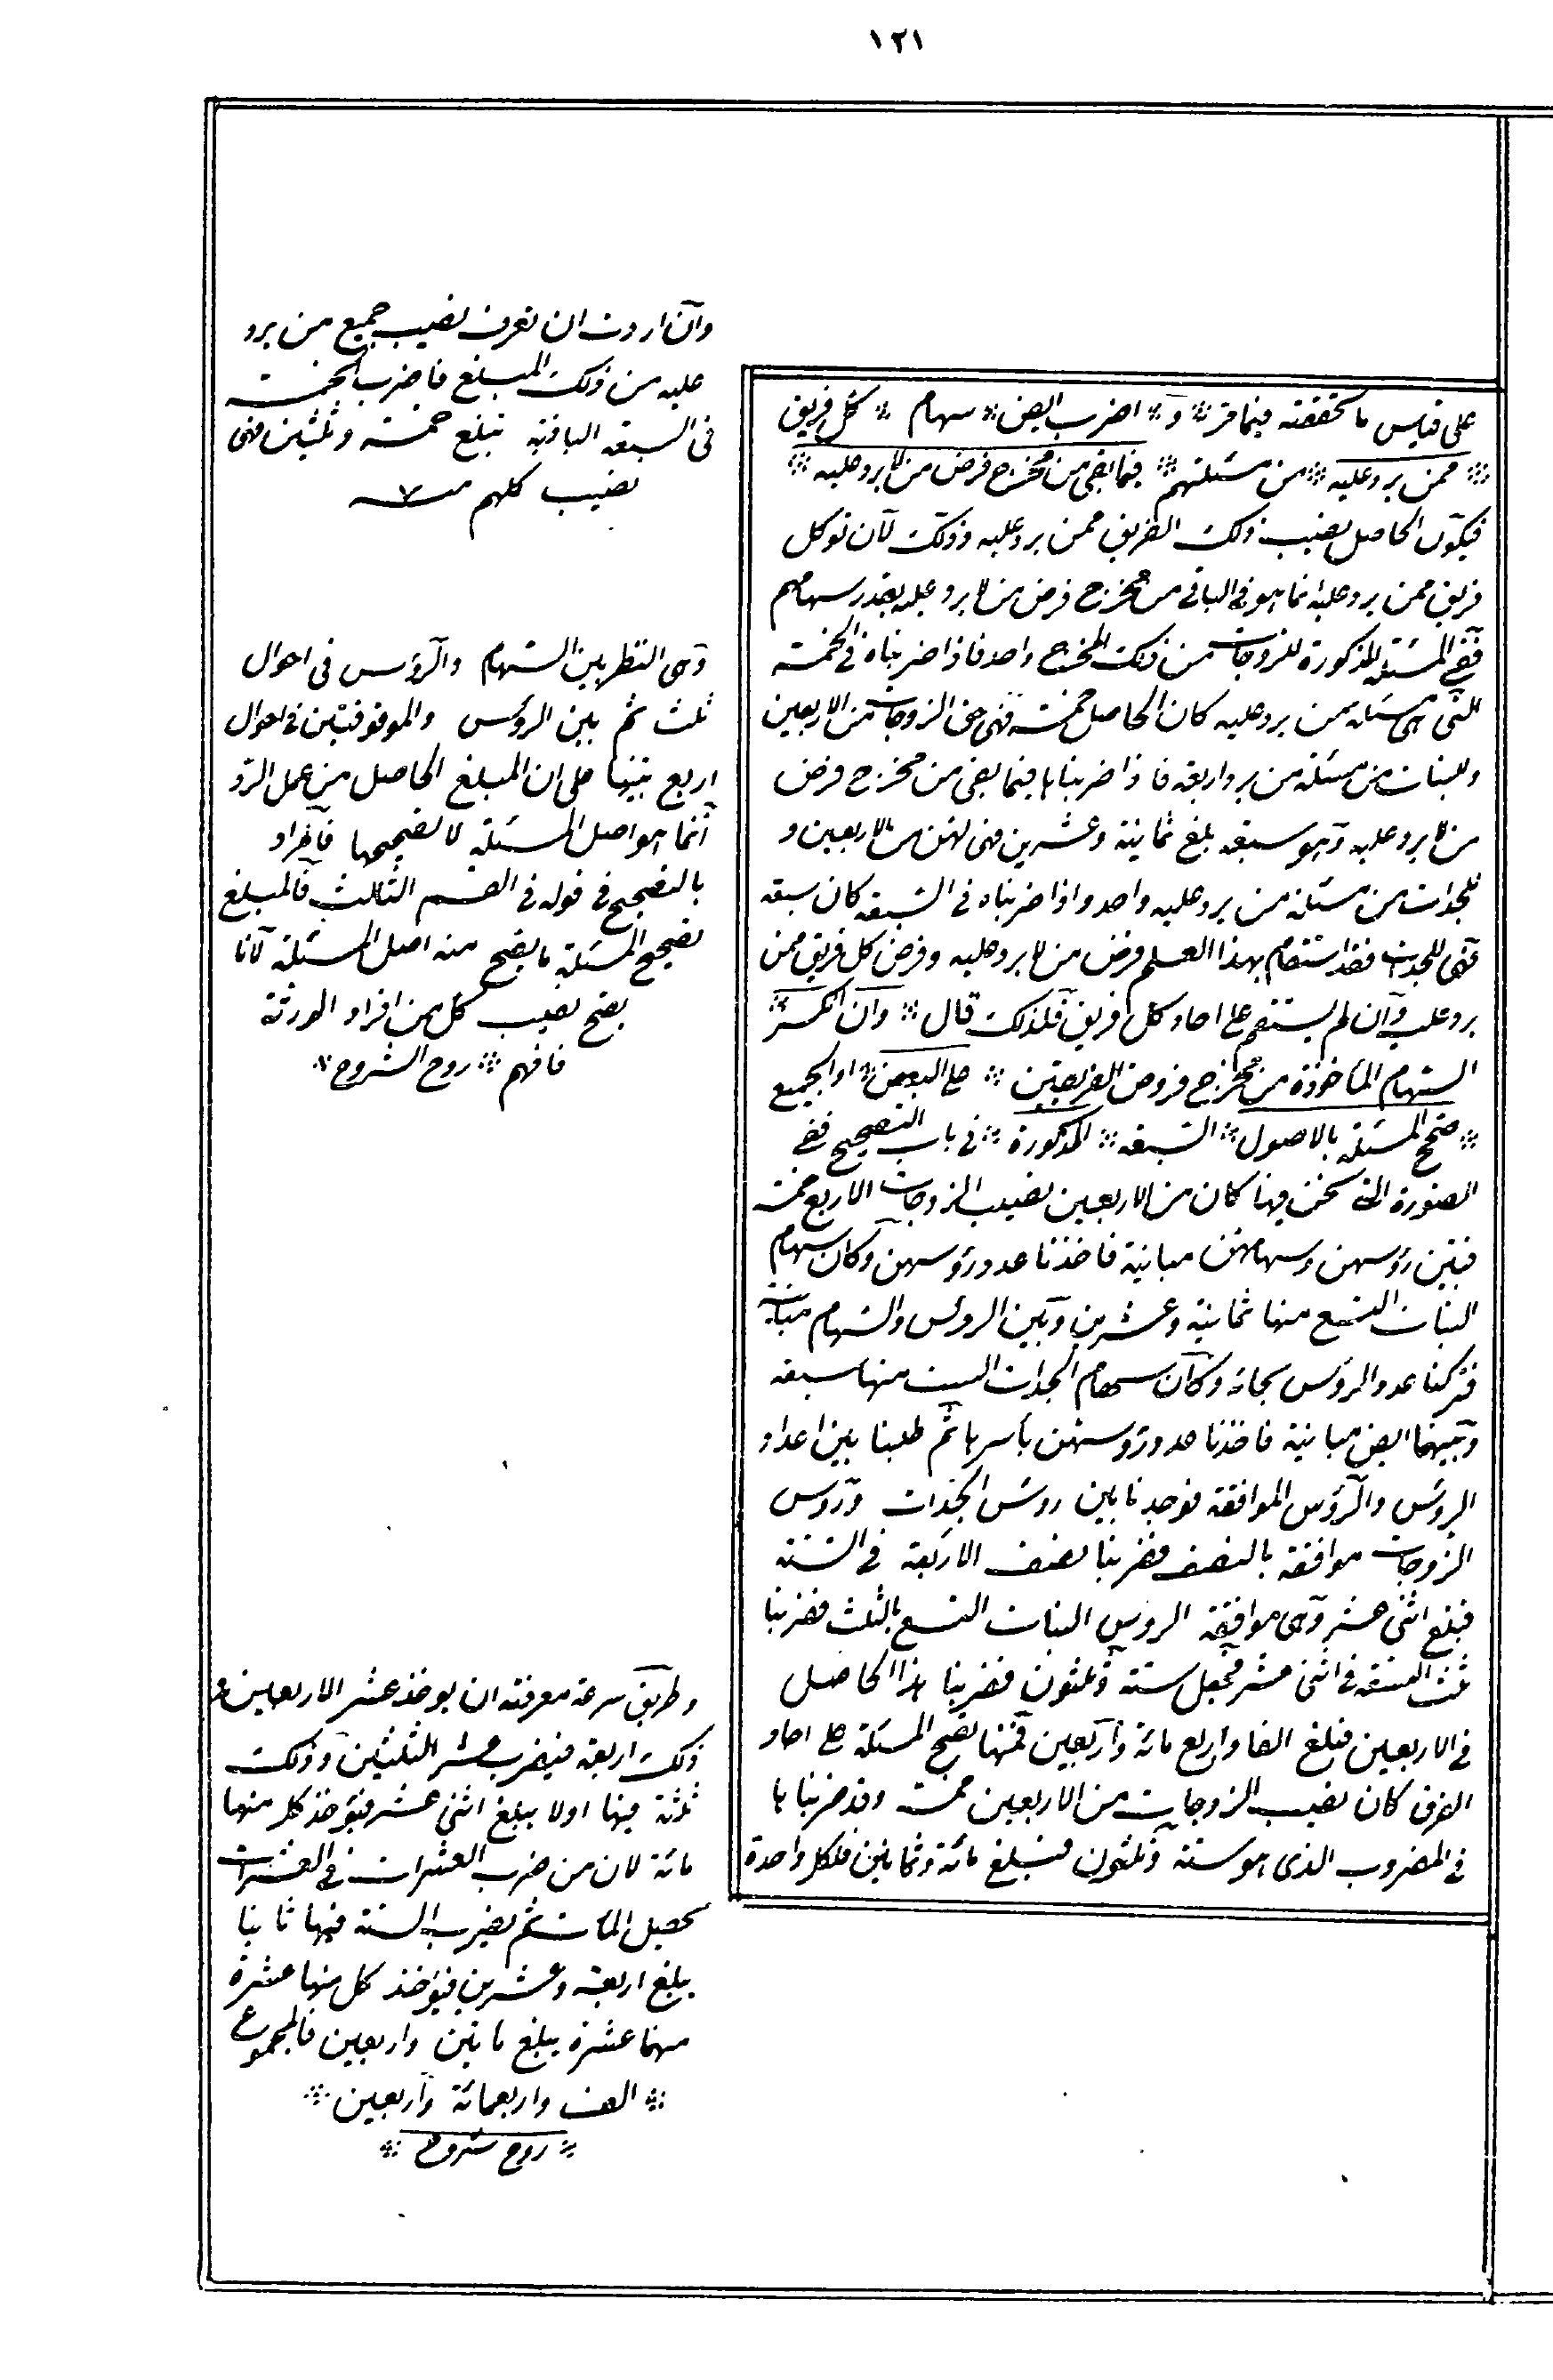 ١٢١
على قياس ما تحققته فيما مر ❊ و ❊ اضرب ايضن ❊ سهام ❊ كل فريق
❊ ممن يرد عليه ❊ من مسئلتهم ❊ فيما بقى من مخرج فرض من لا يرد عليه ❊
فيكون الحاصل نصيب ذلك الفريق ممن يرد عليه وذلك لان لو كل
فريق ممن يرد عليه انما هو فى الباقى من مخرج فرض من لا يرد عليه بقدر سهامهم
ففى المسئلة المذكورة للزوجات من ذلك المخرج واحد فاذا ضربناه فى الخمسة
التى هى مسئلة من يرد عليه كان الحاصل خمسة فهى حق الزوجات من الاربعين
وللبنات من مسئلة من يرد اربعة فاذا ضربناها فيما بقى من مخرج فرض
من لا يرد عليه وهو سبعة بلغ ثمانية وعشرين فهى لهن من الاربعين و
للجدات من مسئلة من يرد عليه واحد واذا ضربناه فى السبعة كان سبعة
فهى للجدات فقد استقام بهذا العلم فرض من لا يرد عليه وفرض كل فريق ممن
يرد عليه وان لم يستقم على احاد كل فريق فلذلك قال ❊ وان انكسر ❊
السهام المأخوذة من مخرج فروض الفريقين ❊ على البعض ❊ او الجميع
❊ صحح المسئلة بالاصول ❊ السبعة ❊ المذكورة ❊ فى باب التصحيح ففى
الصورة التى نحن فيها كان من الاربعين نصيب الزوجات الاربع خمسة
فبين رؤسهن وسهامهن مباينة فاخذنا عدد رؤسهن وكان سهام
البنات التسع منها ثمانية وعشرين وبين الرؤس والسهام مباينة
فتركنا عدد الرؤس بحاله وكان سهام الجدات الست منها سبعة
وبينهما ايضن مباينة فاخذنا عدد رؤسهن بأسرها ثم طلبنا بين اعداد
الرؤس والرؤس الموافقة فوجدنا بين رؤس الجدات ورؤس
الزوجات موافقة بالنصف فضربنا نصف الاربعة فى الستة
فبلغ اثنى عشر وهى موافقة الرؤس البنات التسع بالثلث فضربنا
ثلث التسعة فى اثنى عشر فحصل ستة وثلثون فضربنا هذا الحاصل
فى الاربعين فبلغ الفا واربع مائة واربعين فمنها تصح المسئلة على احاد
الفرق كان نصيب الزوجات من الاربعين خمسة وقد ضربناها
فى المضروب الذى هو ستة وثلثون فتبلغ مائة وثمانين فلكل واحدة
وان اردت ان تعرف نصيب جميع من يرد
عليه من ذلك المبلغ فاضرب الخمسة
فى السبعة الباقية تبلغ خمسة وثلثين فهى
نصيب كلهم
وهى النظر بين السهام والرؤس فى احوال
ثلث ثم بين الرؤس والموقوفتين فى احوال
اربع بنيها على ان المبلغ الحاصل من عمل الرد
انما هو اصل المسئلة لا تصحيحها فالمراد
بالتصحيح فى قوله فى القسم الثالث فالمبلغ
تصحيح المسئلة ما يصح منه اصل المسئلة لانا
يصح نصيب كل من افراد الورثة
فافهم ❊ روح الشروح ❊
وطريق سرعة معرفته ان يؤخذ عشر الاربعين و
ذلك اربعة فيضرب عشر الثلثين وذلك
ثلثة فيها اولا يبلغ اثنى عشر فيؤخذ كل منها
مائة لان من ضرب العشرات فى العشرات
تحصيل المئات ثم يضرب الستة فيها ثانيا
يبلغ اربعة وعشرين فيؤخذ كل منها عشرة
منها عشرة يبلغ مائتين واربعين فالمجموع
❊ الف واربعمائة واربعين ❊
❊ روح شروح ❊